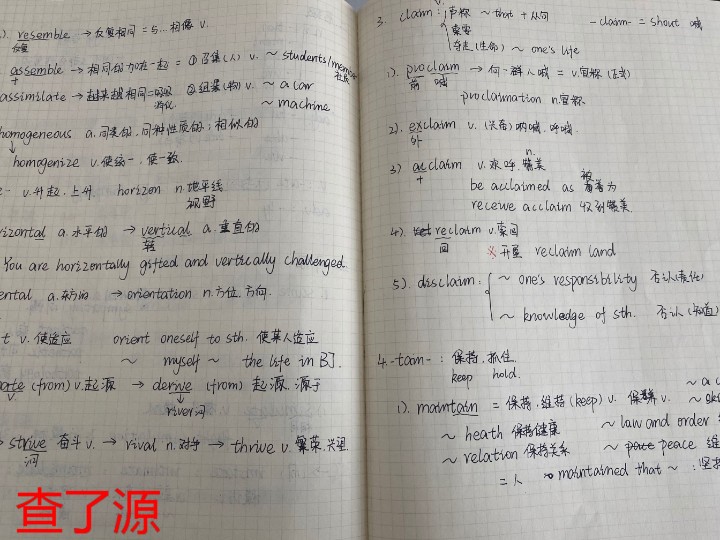 ). resemble → 反复相同 = 与…相像 v.
反复
assemble → 相同的加在一起 = ① 召集(人) v. ~ students/
+
② 组装(物) v. ~ a car
assimilate → 越来越相同 =
~ machine
homogeneous a. 同类的, 同种性质的; 相似的
↓
homogenize v. 使统一, 使一致.
v. 升起, 上升 horizon n. 地平线
视野
rizontal a. 水平的 → vertical a. 垂直的
转
You are horizontally gifted and vertically challenged.
ental a. 东方的 → orientation n. 方位, 方向.
t v. 使适应 orient oneself to sth. 使某人适应
~ myself ~ the life in BJ.
(from) v. 起源 → derive (from) 起源, 源于
v. ↓
river 河
→ strive 奋斗 v. → rival n. 对手 → thrive v. 繁荣, 兴旺
河
3. claim: 声称 ~ that + 从句 -claim- = shout 喊
索要
夺走(生命) ~ one's life
1). proclaim → 向一群人喊 = v. 宣称 (正式)
前 喊
proclaimation n. 宣称
2). exclaim v. (兴奋) 呐喊, 呼喊.
外
3) acclaim v. 欢呼, 赞美 n.
+
be acclaimed as 被誉为
receive acclaim 收到赞美.
4). reclaim v. 索回
回
※ 开垦 reclaim land
5). disclaim: { ~ one's responsibility 否认(责任)
~ knowledge of sth. 否认(知道)
4. -tain-: 保持, 抓住.
keep hold.
1). maintain = 保持, 维持 (keep) v. 保养 v. ~ a c
~ heath 保持健康 ~ law and order
~ relation 保持关系 ~ peace 维
= 人 ~ maintained that ~ : 坚持
查了源